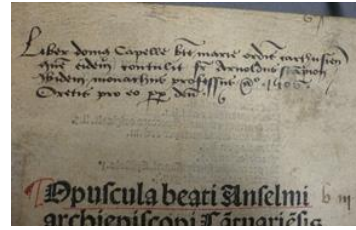 Liber domꝰ Capelle bte marie ordis carthusien
quē eidem contulit fr Arnoldus
ibidem monachus professus aº 1496
Oretis pro eo ꝓꝑ deū
Opuscula beati Anselmi
archiepiscopi Cātuariēsis